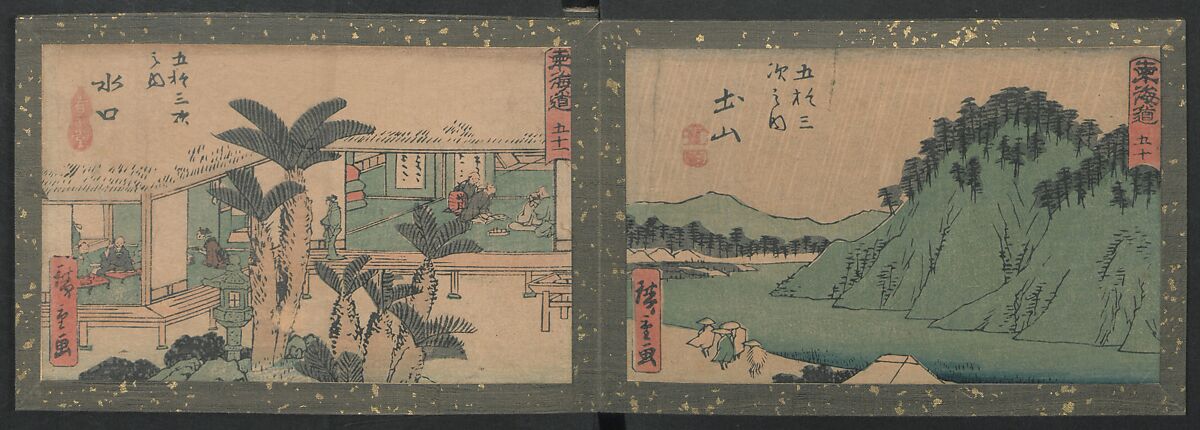 東海道 五十
五拾三
次之内
土山
廣重画
東海道 五十一
五拾三次
之内
水口
廣重画